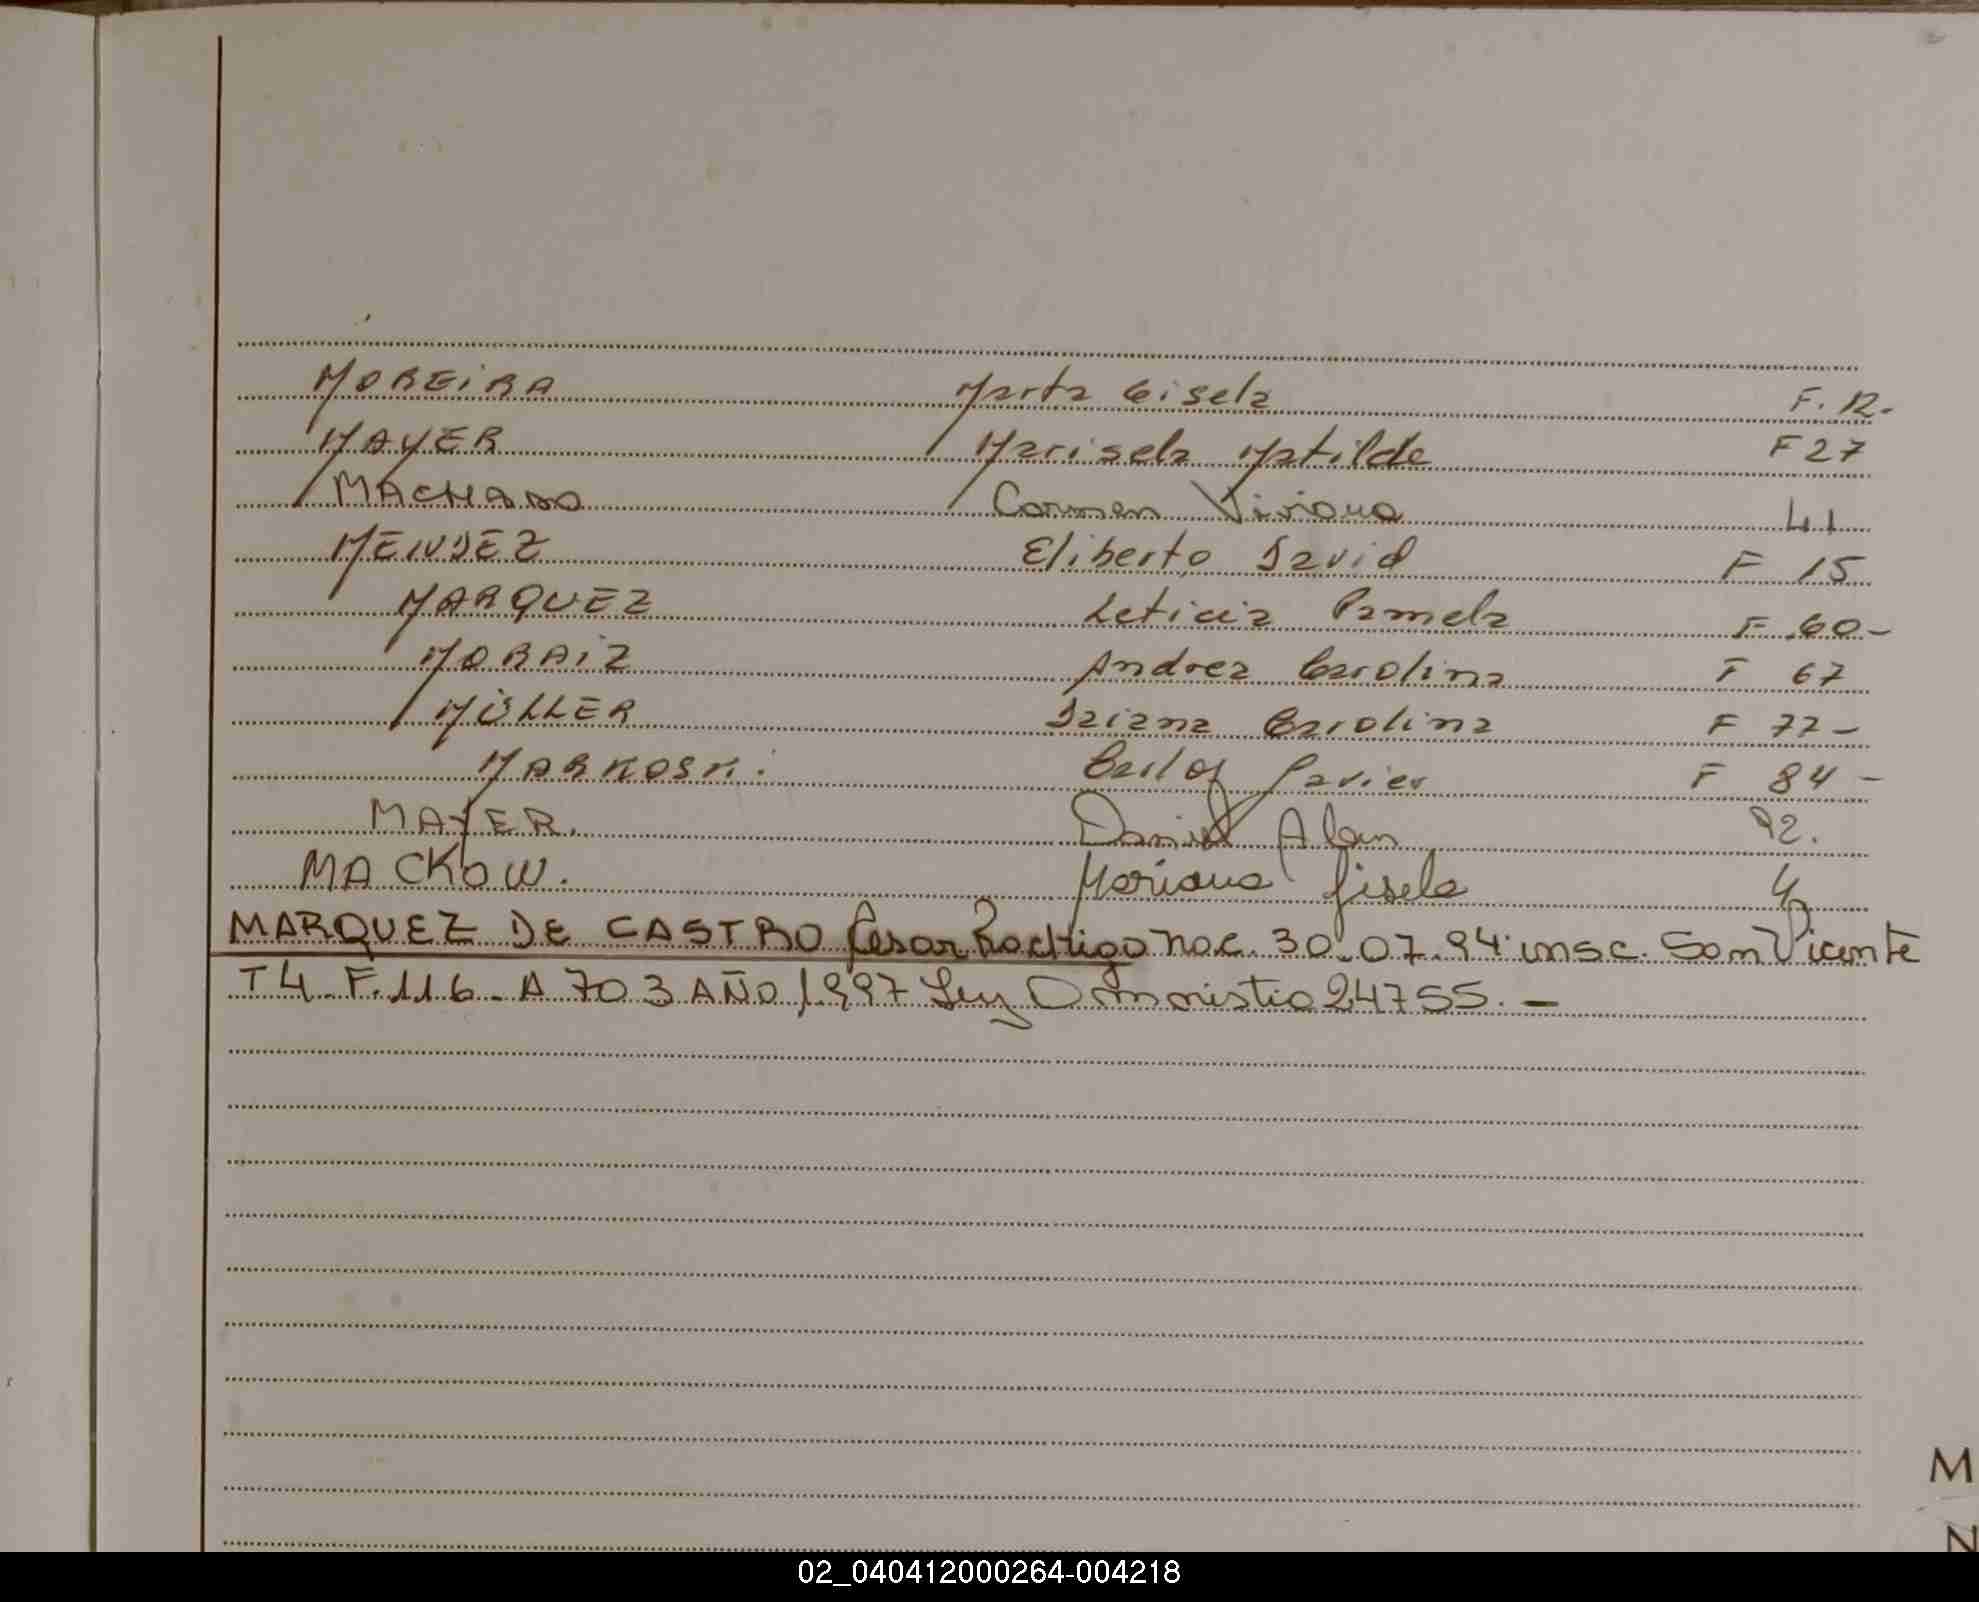 MOREIRA Marta Gisela F. 12.
MAYER Marisela Matilde F 27
MACHADO Carmen Viviana 41
MENDEZ Eliberto David F 15
MARQUEZ Leticia Pamela F 60-
MORAIZ Andrea Carolina F 67
MÜLLER Daiana Carolina F 77-
MARKOSKI Carlos Javier F 84-
MAYER. Daniel Alan 92.
MACKOW. Mariana Gisela 4
MARQUEZ DE CASTRO Cesar Rodrigo nac. 30.07.94 insc. San Vicente
T4 F.116 A 703 AÑO 1997 Ley Amnistia 24755.-
M
N
02_040412000264-004218